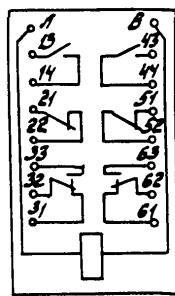 A B
13 43
14 44
21 51
22 52
33 63
32 62
31 61